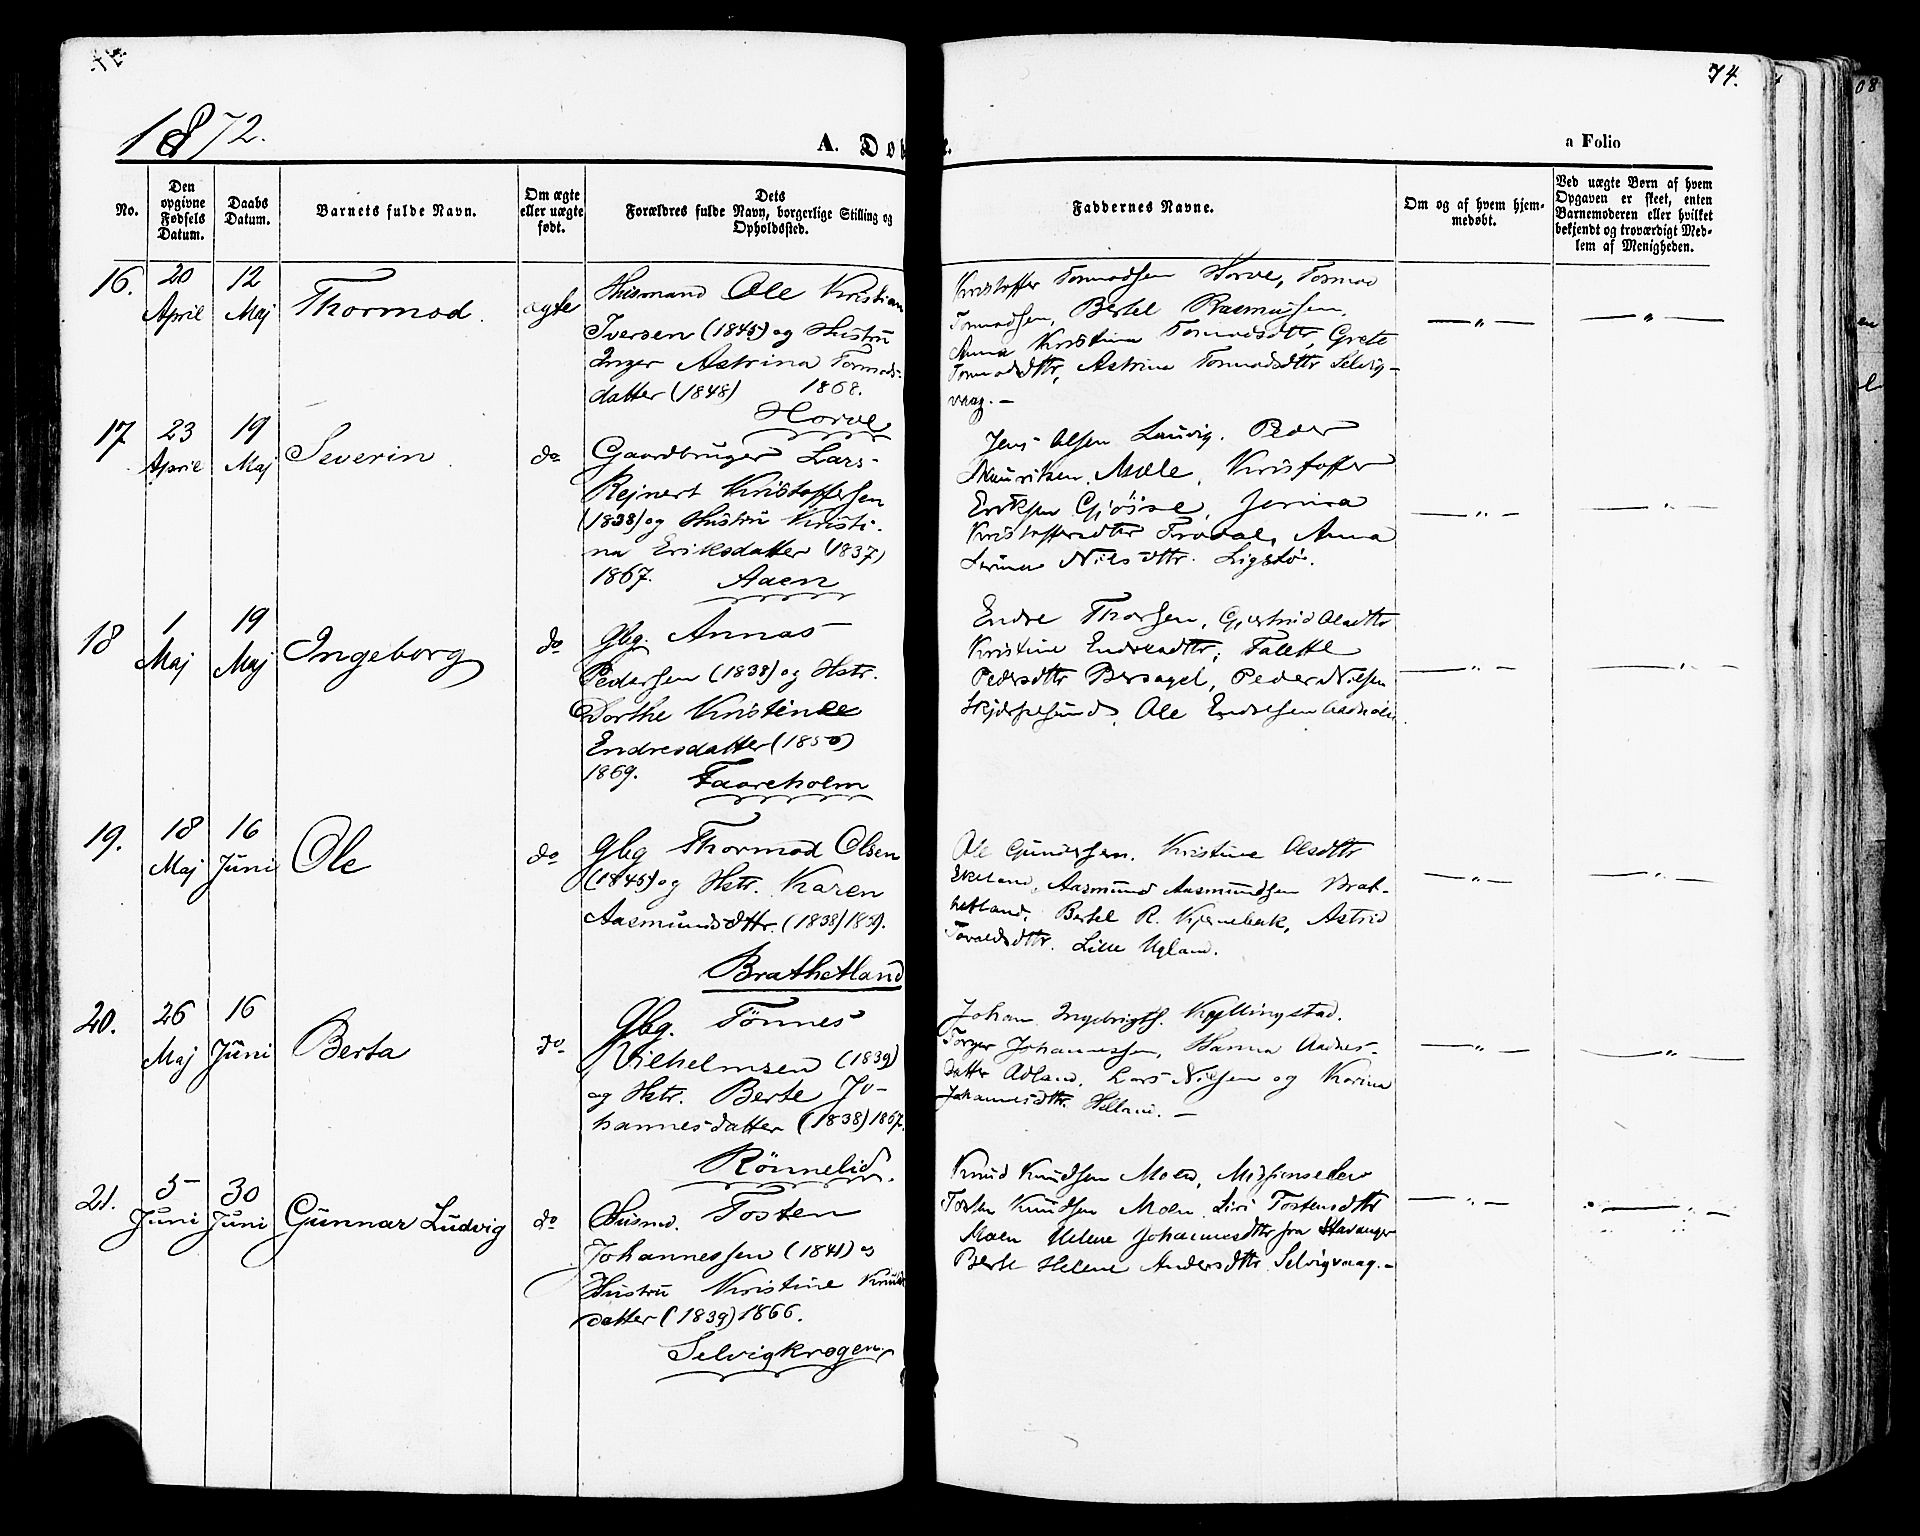 74.
1872.
A. Dø
a Folio
No.
Den opgivne Fødsels Datum.
Daabs Datum.
Barnets fulde Navn.
Om ægte eller uægte født.
Dets Forældres fulde Navn, borgerlige Stilling og Opholdssted.
Faddernes Navne.
Om og af hvem hjemmedøbt.
Ved uægte Børn af hvem Opgaven er skeet, enten Barnemoderen eller hvilket bekjendt og troværdigt Medlem af Menigheden.
16.
20 April
12 Maj
Thormod.
ægte
Husmand Ole Kristian
Iversen (1845) og Hustru
Inger Astrina Tormods-
datter (1848) 1868.
Horve
Kristoffer Tormodsen Horve, Tormod
Tormodsen, Bertel Rasmussen,
Anna Kristina Tormodsdttr, Grete
Tormodsdttr, Astrina Tormodsdttr Selvig-
vaag. —
— „ —
— „ —
17
23 April
19 Maj
Severin
do
Gaardbruger Lars
Rejnert Kristoffersen
(1838) og Hustru Kristi-
na Eriksdatter (1837)
1867. Aaen
Jens Olsen Lauvig. Peder
Mauritsen Mæle, Kristoffer
Eriksen Gjøise, Jerina
Kristoffersdttr Frodal, Anna
Serina Nilsdttr. Ligstø.
— „ —
— „ —
18
1 Maj
19 Maj
Ingeborg
do
Gbg. Annas
Pedersen (1838) og Hstr.
Dorthe Kristine
Endresdatter (1850)
1869. Faareholm
Endre Thorsen, Gjertrud Olsdttr
Kristine Endresdttr, Talette
Pedersdttr Bersagel, Peder Nilsen
Ole Endresen
— „ —
— „ —
19.
18 Maj
16 Juni
Ole
do
Gbg Thormod Olsen
(1845) og Hstr. Karen
Aasmundsdttr. (1838)
Brathetland
Ole Gundersen. Kristine Olsdttr
Ekeland, Aasmund Aasmundsen Brat-
hetland, Bertel R. Kjernebæk, Astrid
Toraldsdttr. Lille Ugland.
— „ —
— „ —
20.
26 Maj
16 Juni
Berta
do
Gbg. Tönnes
Vilhelmsen (1839)
og Hstr. Berte Jo-
hannesdatter (1838) 1867.
Rönnelid.
Johan Ingebrigts. Kyllingstad.
Torger Johannessen, Hanna Aadnes-
datter Adland. Lars Nilsen og Karina
Johannesdttr. Helland. —
— „ —
— „ —
21.
5 Juni
30 Juni
Gunnar Ludvig
do
Husmd. Tosten
Johannessen (1841) og
Hustru Kristine Knuds
datter (1839) 1866.
Selvigkrogen.
Knud Knudsen Moen, Missionselev
Tosten Knudsen Moen, Siri Tostensdttr
Moen Helene Johannesdttr fra Stavanger
Berte Helene Andersdttr Selvigvaag. —
— „ —
— „ —